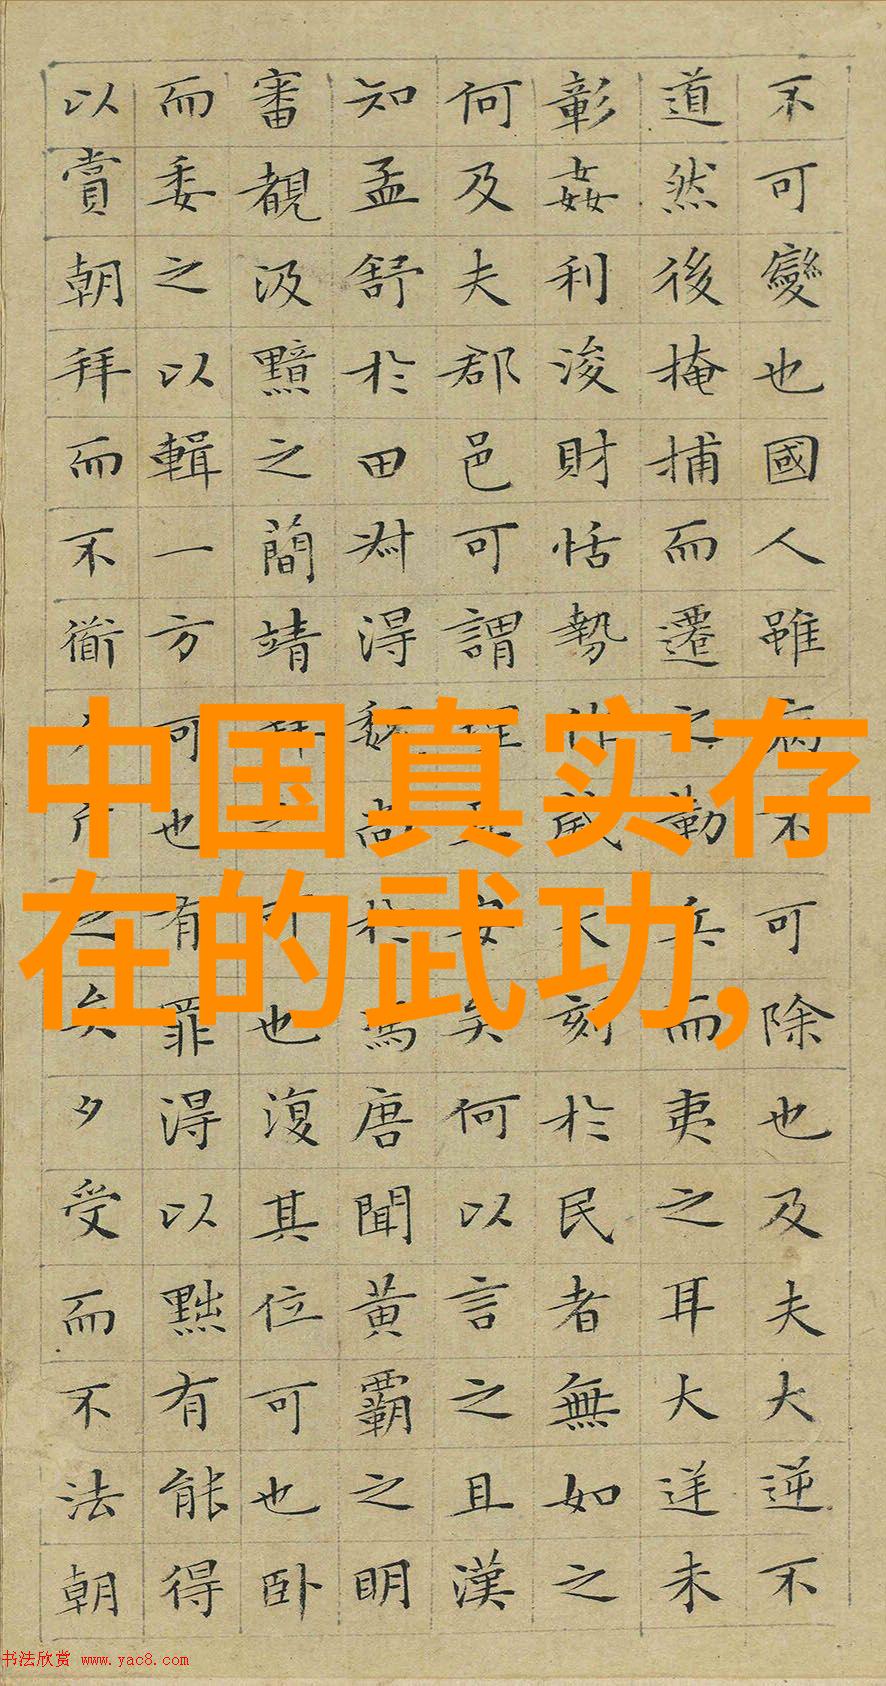 不可變也國人雖病不可除也及夫大逆不
道然後掩捕而遷之勒兵而夷之耳大逆未
彰姦利浚財恬勢作威大刻於民者無如之
何及夫郡邑可謂理且安矣何以言之且漢
知孟舒於田叔得魏尚於馮唐聞黃霸之明
審覩汲黯之簡靖拜之可也復其位可也卧
而委之以輯一方可也有罪得以黜有能得
以賞朝拜而不道夕斥之矣夕受而不法朝
中国真实存
在的武功,
书法欣赏 www.yac8.com